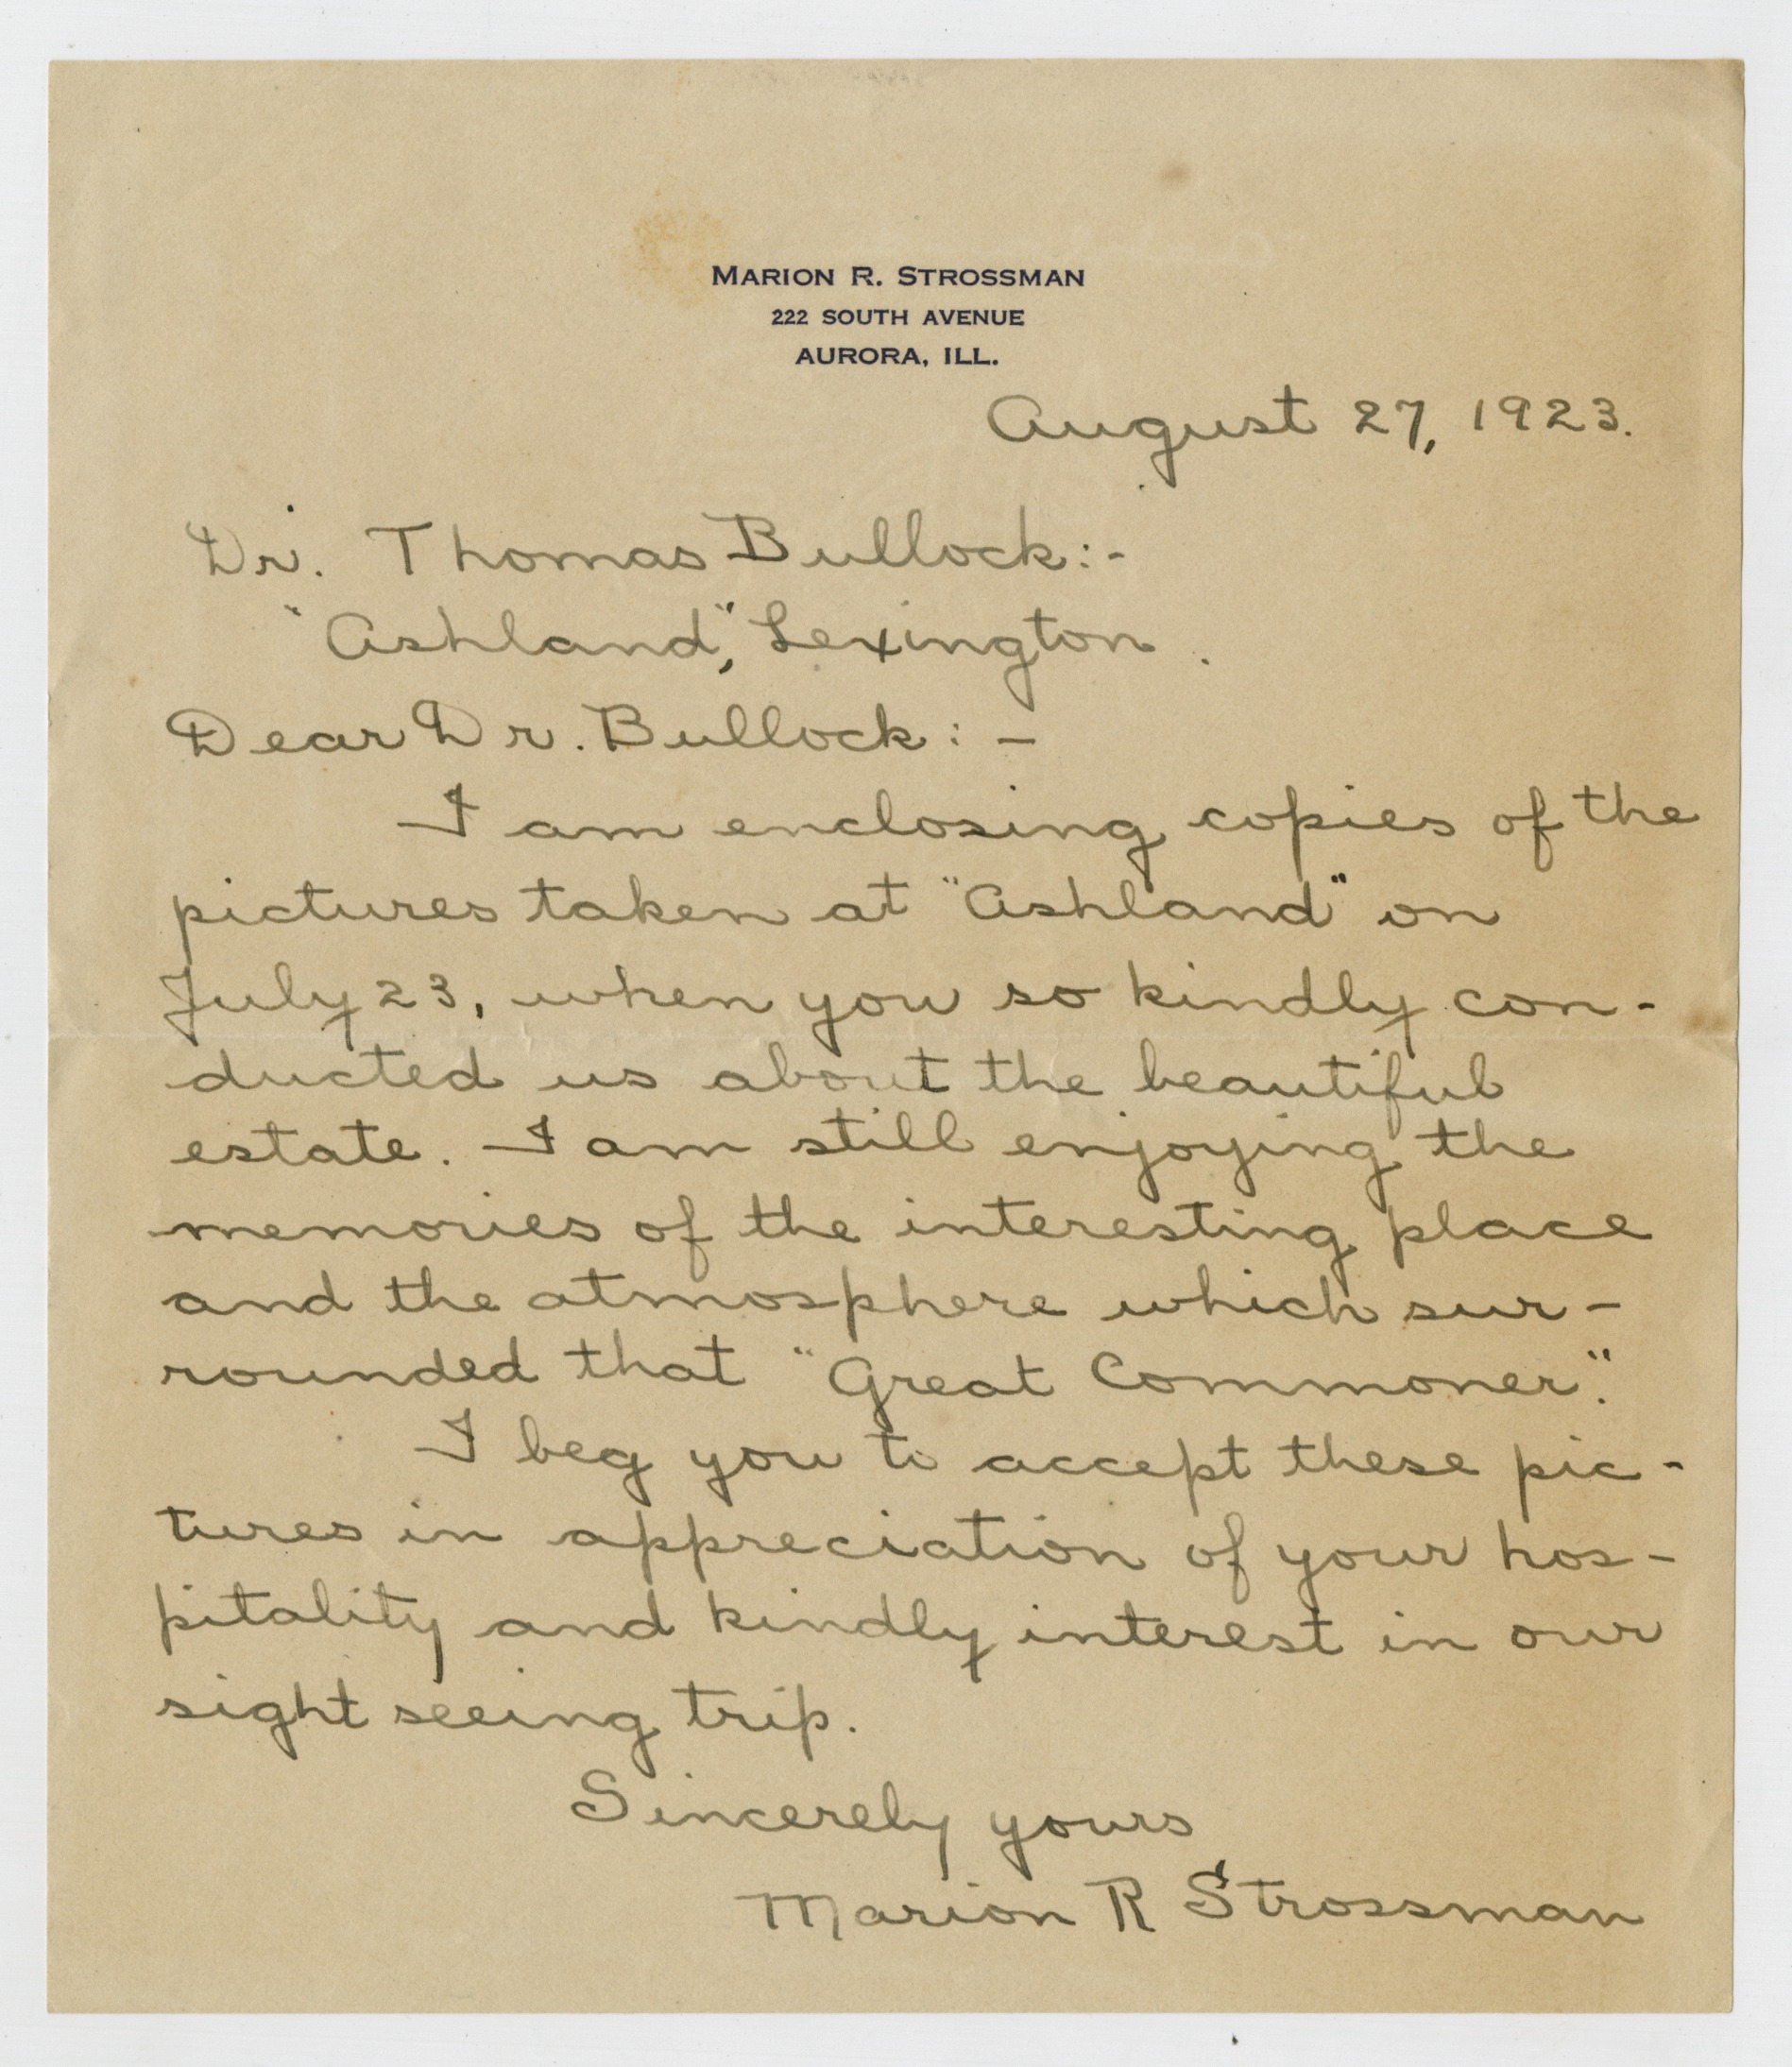 MARION R. STROSSMAN
222 SOUTH AVENUE
AURORA, ILL.
August 27, 1923.
Dr. Thomas Bullock:-
"Ashland," Lexington.
Dear Dr. Bullock:-
I am enclosing copies of the
pictures taken at "Ashland" on
July 23, when you so kindly con-
ducted us about the beautiful
estate. I am still enjoying the
memories of the interesting place
and the atmosphere which sur-
rounded that "Great Commoner".
I beg you to accept these pic-
tures in appreciation of your hos-
pitality and kindly interest in our
sight seeing trip.
Sincerely yours
Marion R Strossman